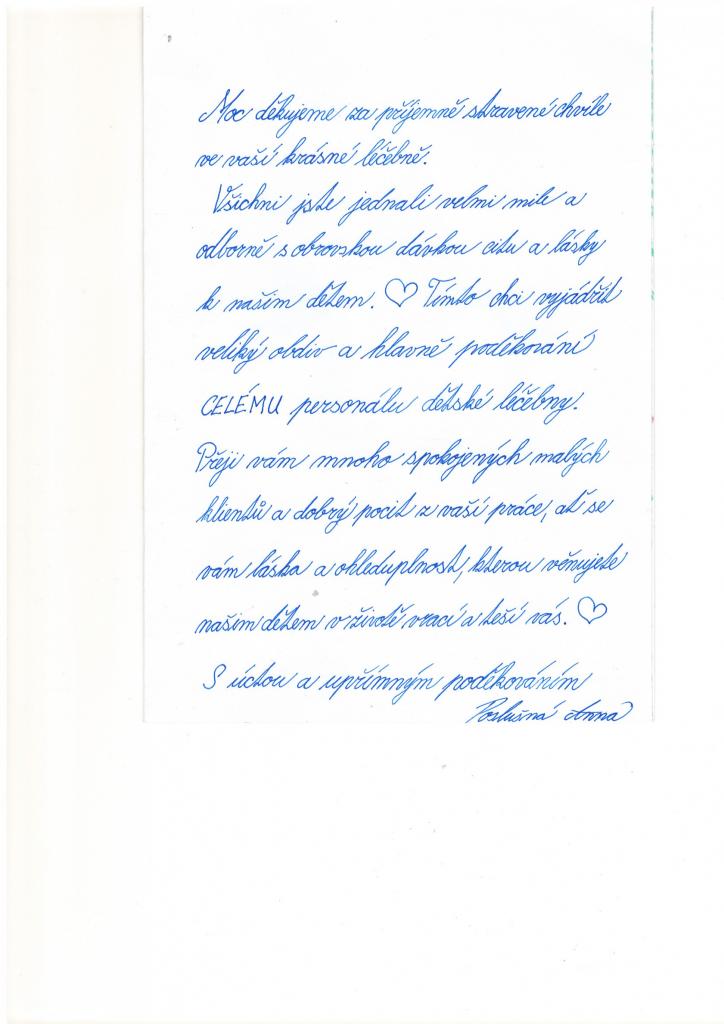 Moc děkujeme za příjemně strávené chvíle
ve vaší krásné léčebně.
Všichni jste jednali velmi mile a
odborně s obrovskou dávkou citu a lásky
k našim dětem. ♡ Tímto chci vyjádřit
veliký obdiv a hlavně poděkování
CELÉMU personálu dětské léčebny.
Přeji vám mnoho spokojených malých
klientů a dobrý pocit z vaší práce, ať se
vám láska a ohleduplnost, kterou věnujete
našim dětem v životě vrací a těší vás. ♡
S úctou a upřímným poděkováním
Poslušná Anna